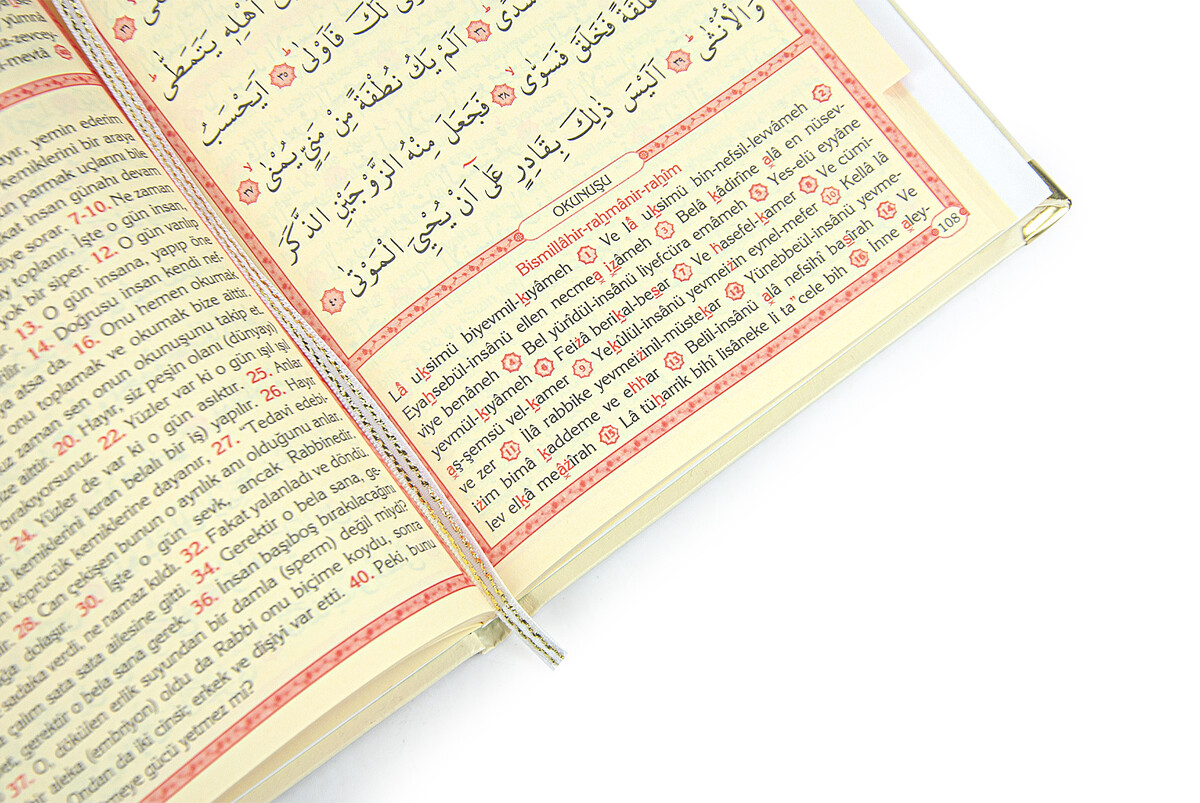 yümna
z-zevcey-
-mevtâ
yemin ederim
kemiklerini bir araya
parmak uçlarını bile
insan günahı devam
diye sorar. 7-10. Ne zaman
toplanır, İşte o gün insan,
yok bir siper. 12. O gün varılıp
13. O gün insana, yapıp öne
14. Doğrusu insan kendi nef-
atsa da. 16. Onu hemen okumak
onu toplamak ve okumak bize aittir.
zaman sen onun okunuşunu takip et.
aittir. 20. Hayır, siz peşin olanı (dünyayı)
bırakıyorsunuz. 22. Yüzler var ki o gün ışıl ışıl
24. Yüzler de var ki o gün asıktır. 25. Anlar
kemiklerini kıran belalı bir iş) yapılır. 26. Hayır
köprücük kemiklerine dayanır, 27. "Tedavi edebi-
28. Can çekişen bunun o ayrılık anı olduğunu anlar.
dolaşır. 30. İşte o gün sevk, ancak Rabbinedir.
sadaka verdi, ne namaz kıldı. 32. Fakat yalanladı ve döndü.
çalım sata sata ailesine gitti. 34. Gerektir o bela sana, ge-
gerektir o bela sana gerek. 36. İnsan başıboş bırakılacağını
37. O, dökülen erlik suyundan bir damla (sperm) değil miydi?
bir aleka (embriyon) oldu da Rabbi onu biçime koydu, sonra
Ondan da iki cinsi; erkek ve dişiyi var etti. 40. Peki, bunu
meye gücü yetmez mi?
اَهْلِهٖ يَتَمَطّٰى
لَكَ فَاَوْلٰى ﴿٣٥﴾ اَيَحْسَبُ
سُدًى ﴿٣٦﴾ اَلَمْ يَكُ نُطْفَةً مِنْ مَنِيٍّ يُمْنٰى ﴿٣٧﴾
عَلَقَةً فَخَلَقَ فَسَوّٰى ﴿٣٨﴾ فَجَعَلَ مِنْهُ الزَّوْجَيْنِ الذَّكَرَ
وَالْاُنْثٰى ﴿٣٩﴾ اَلَيْسَ ذٰلِكَ بِقَادِرٍ عَلٰٓى اَنْ يُحْيِيَ الْمَوْتٰى ﴿٤٠﴾
OKUNUŞU
Bismillâhir-rahmânir-rahîm
Lâ uksimü biyevmil-kıyâmeh 1 Ve lâ uksimü bin-nefsil-levvâmeh 2
Eyahsebül-insânü ellen necmea izâmeh 3 Belâ kâdirîne alâ en nüsev-
viye benâneh 4 Bel yürîdül-insânü liyefcüra emâmeh 5 Yes-elü eyyâne
yevmül-kıyâmeh 6 Feizâ berikal-besar 7 Ve hasefel-kamer 8 Ve cümi-
aş-şemsü vel-kamer 9 Yekülül-insânü yevmeizin eynel-mefer 10 Kellâ lâ
ve zer 11 İlâ rabbike yevmeizinil-müstekar 12 Yünebbeül-insânü yevme-
izim bimâ kaddeme ve ehhar 13 Belil-insânü alâ nefsihî basîrah 14 Ve
lev elkâ meâzîrah 15 Lâ tüharrik bihî lisâneke li ta"cele bih 16 İnne aley-
108